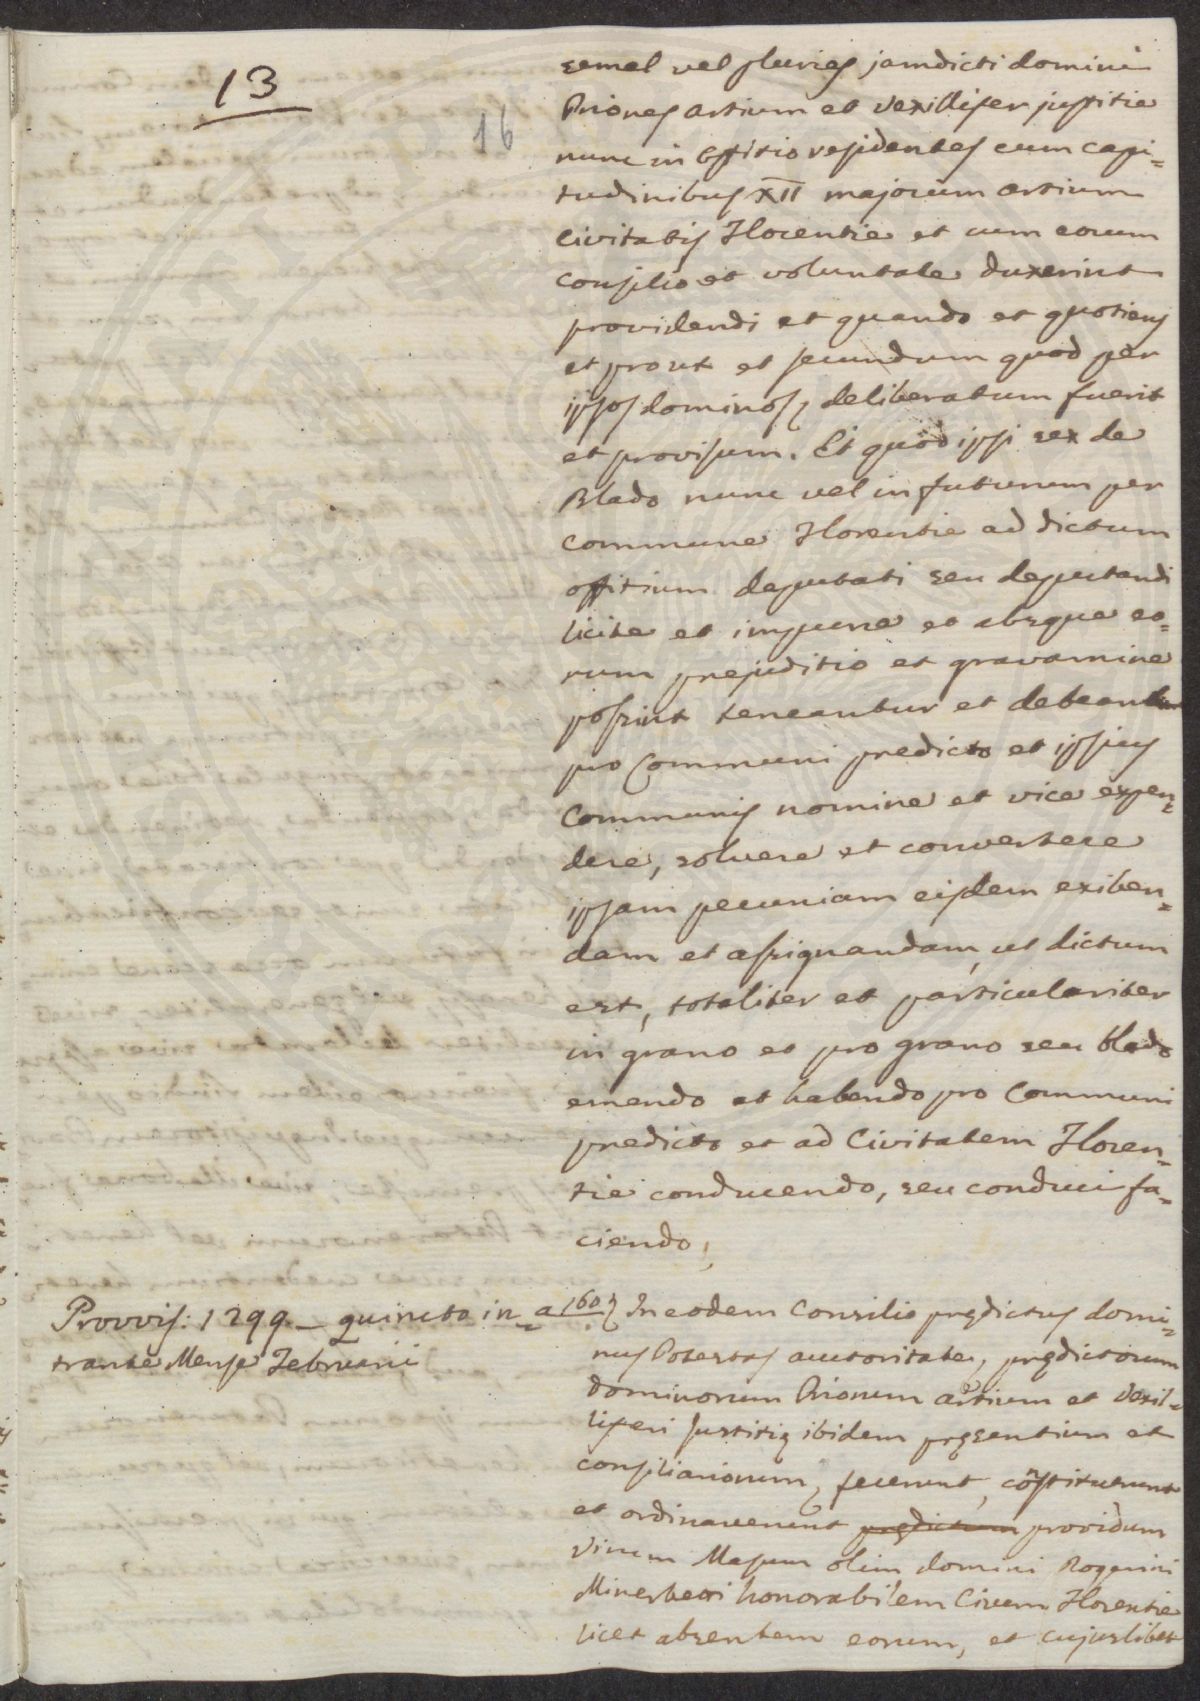 13
16
semel vel pluries jamdicti domini
Priores artium et Vexillifer justitie
nunc in Offitio residentes cum capi=
tudinibus XII majorum artium
Civitatis Florentie et cum eorum
consilio et voluntate duxerint
providendi et quando et quotiens
et prout et secundum quod per
ipsos dominos, deliberatum fuerit
et provisum. Et quod ipsi sex de
Blado nunc vel in futurum per
commune Florentie ad dictum
offitium deputati seu deputandi
licite et impune et absque eo=
rum prejuditio et gravamine
possint teneantur et debeantur
pro Communi predicto et ipsius
Communis nomine et vice expen=
dere, solvere et convertere
ipsam pecuniam eisdem exiben=
dam et assignandam, ut dictum
est, totaliter et particulariter
in grano et pro grano seu blado
emendo et habendo pro Communi
predicto et ad Civitatem Floren=
tie conducendo, seu conduci fa=
ciendo,
Provvis: 1299 _ quincto in= a 160
trante Mense Februarii
In eodem Consilio prędictus domi=
nus Potestas auctoritate, prędictorum
dominorum Priorum artium et Vexil=
liferi Justitię ibidem pręsentium et
consiliariorum, fecerunt, cõstituerunt
et ordinaverunt prędictum providum
Virum Masum olim domini Rogerini
Minerbetti honorabilem Civem Florentie
licet absentem eorum, et cujuslibet